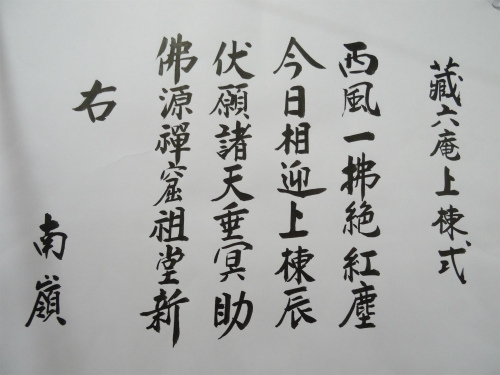 藏六庵上棟式
西風一拂絶紅塵
今日相迎上棟辰
伏願諸天垂冥助
佛源禪窟祖堂新
右
南嶺